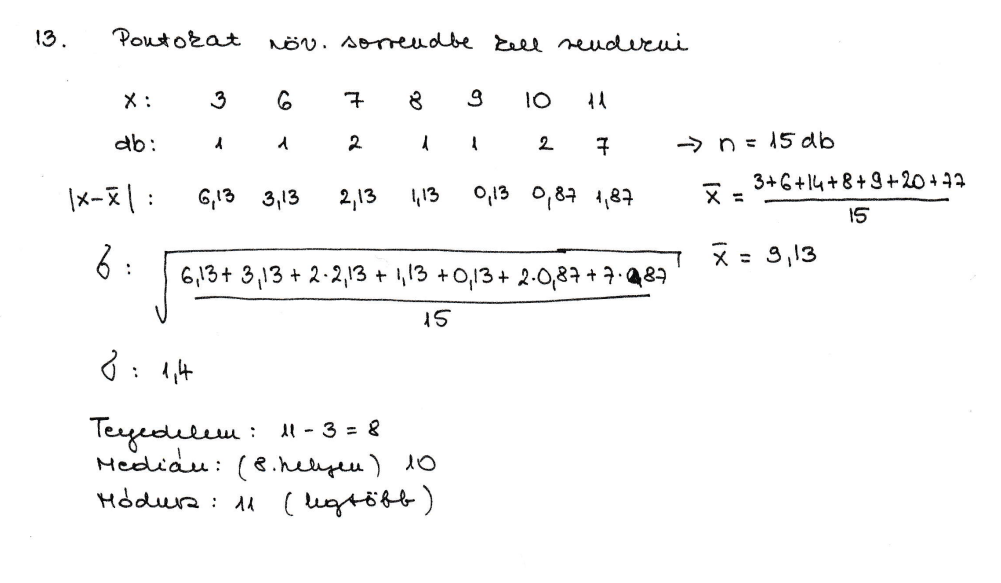 13. Pontokat növ. sorrendbe kell rendezni
x: 3 6 7 8 9 10 11
db: 1 1 2 1 1 2 7 → n = 15 db
|x-x̄|: 6,13 3,13 2,13 1,13 0,13 0,87 1,87 x̄ = (3+6+14+8+9+20+77)/15
x̄ = 9,13
σ: √((6,13+3,13+2·2,13+1,13+0,13+2·0,87+7·1,87)/15)
σ: 1,4
Terjedelem: 11-3=8
Medián: (8. helyen) 10
Módusz: 11 (legtöbb)